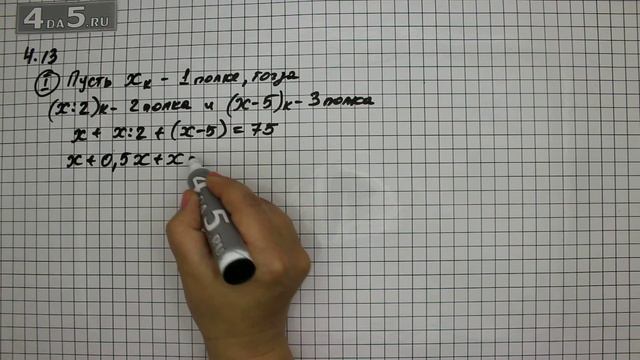 4DA5.RU
4.13
① Пусть x к - 1 полке, тогда
(x:2)к - 2 полка и (x-5)к - 3 полка
x + x:2 + (x-5) = 75
x + 0,5x + x -